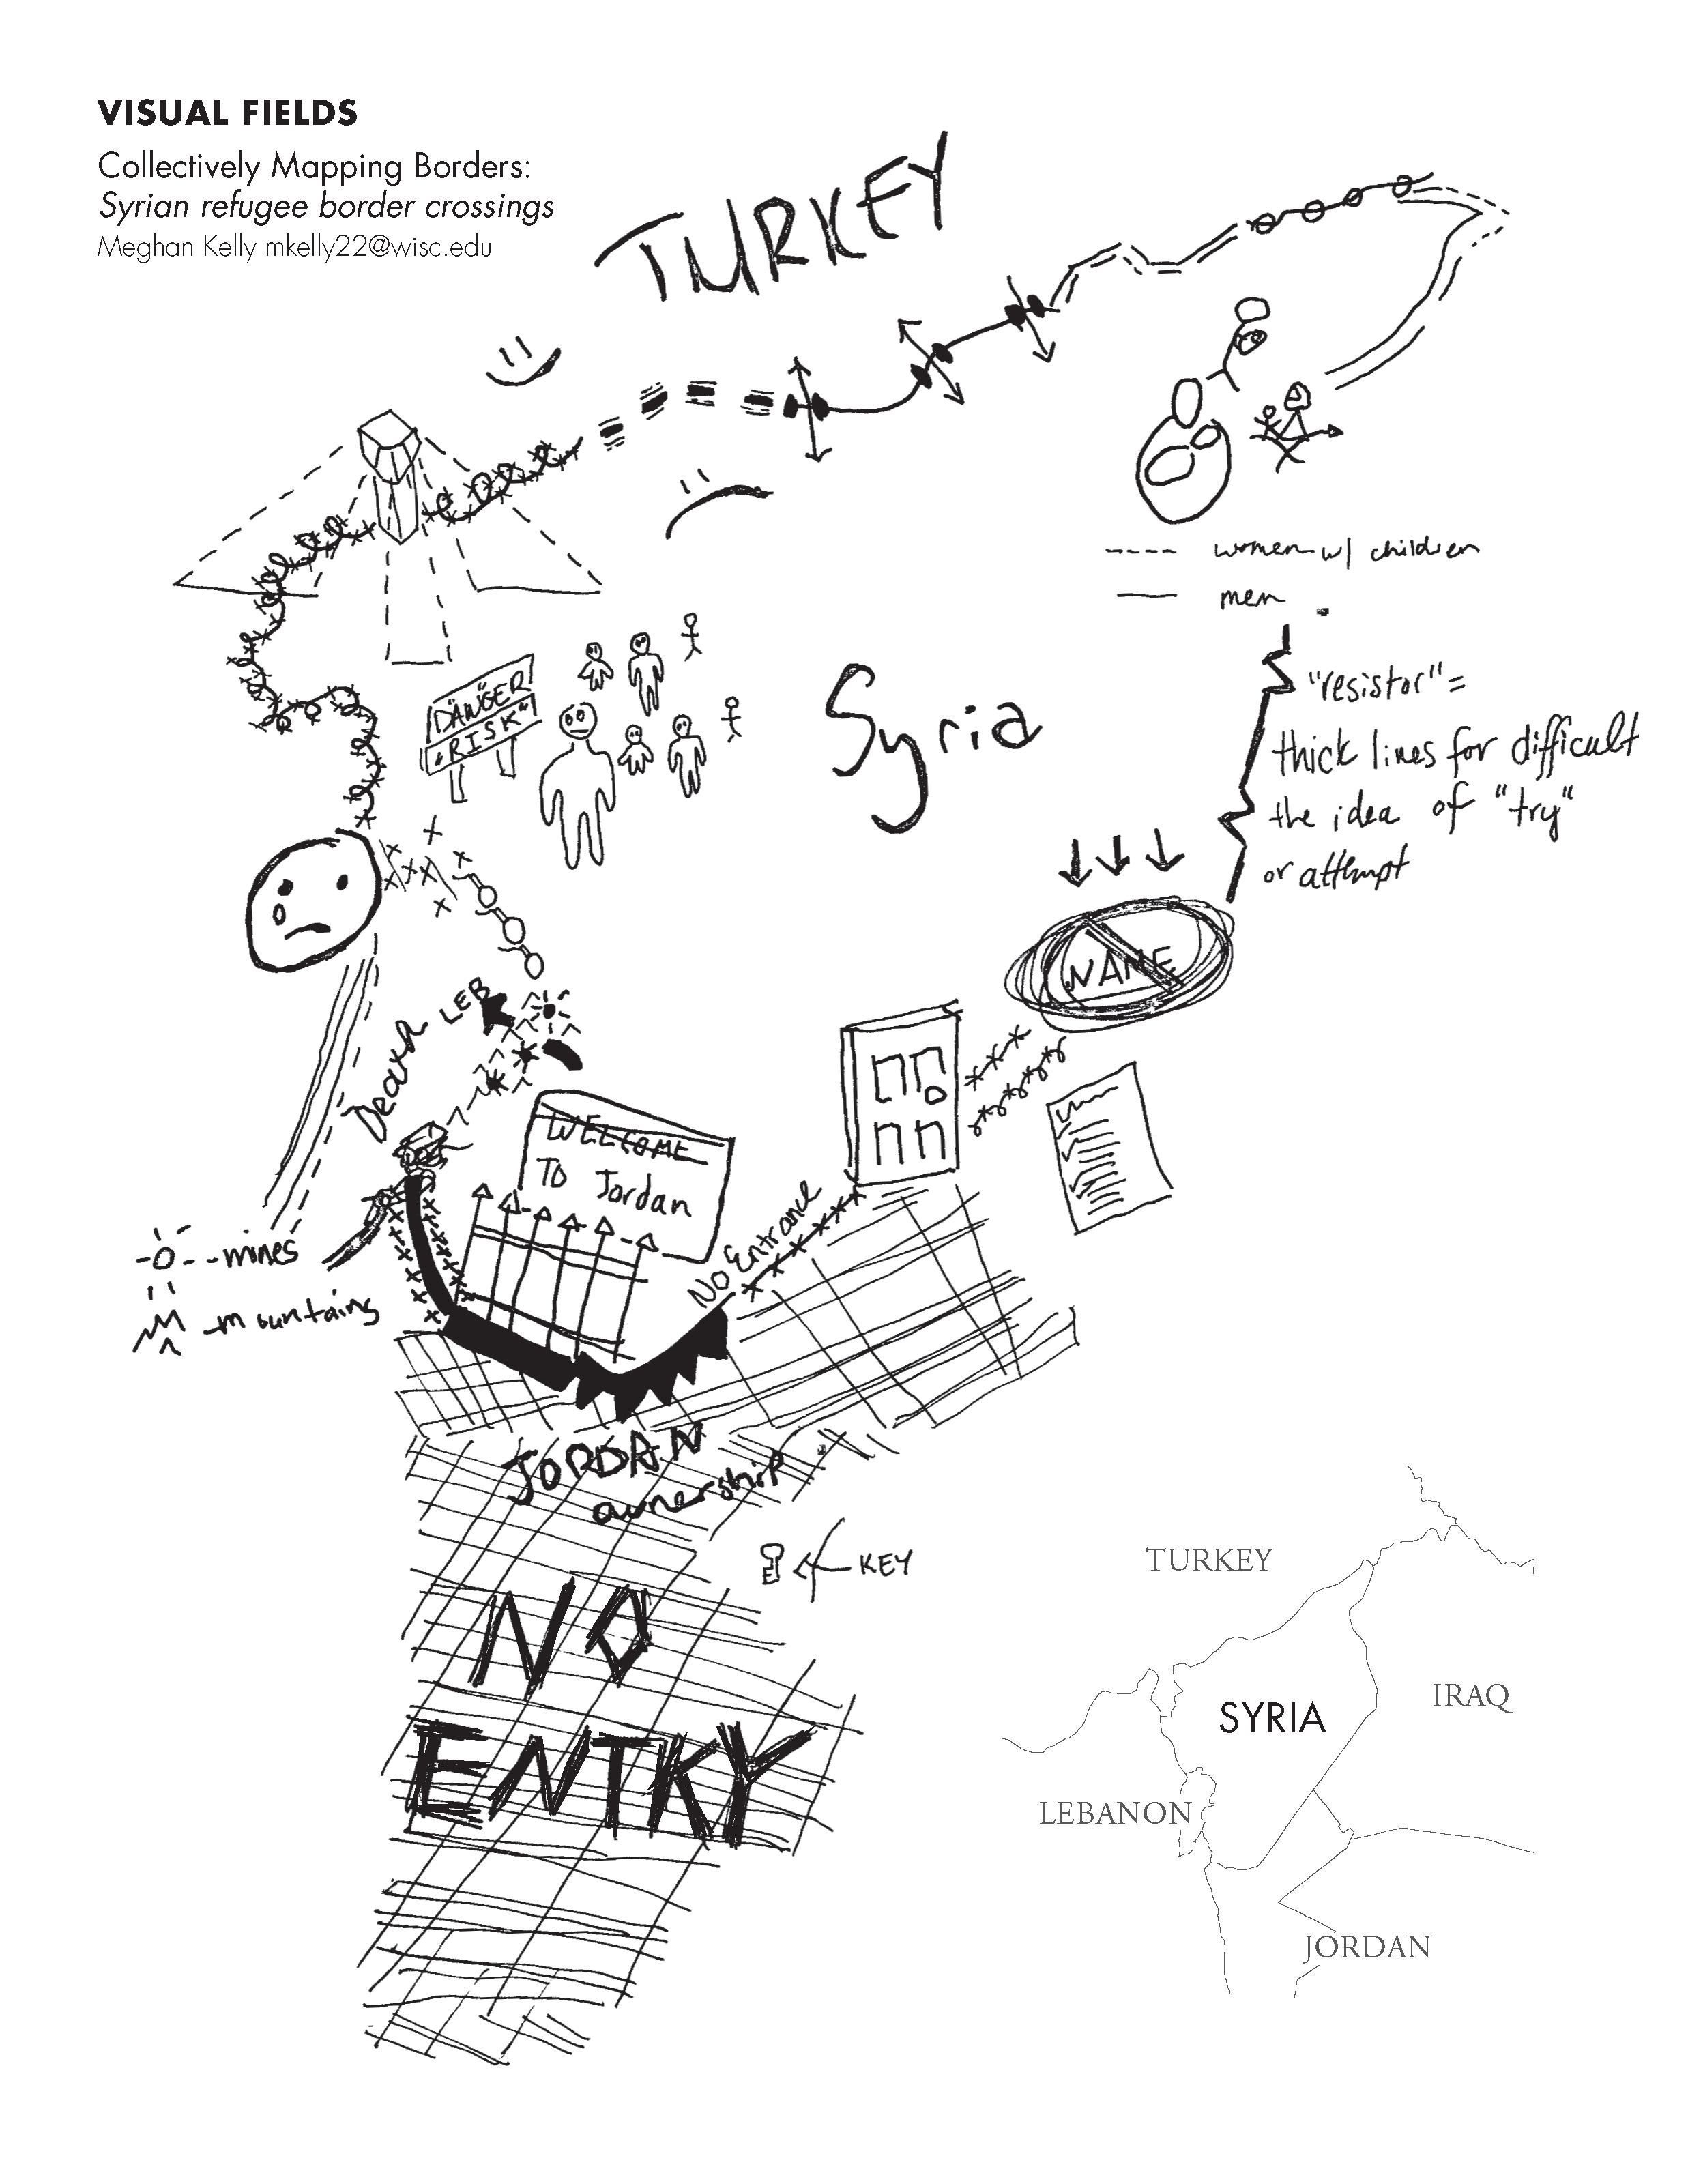 VISUAL FIELDS
Collectively Mapping Borders:
Syrian refugee border crossings
Meghan Kelly mkelly22@wisc.edu
TURKEY
women w/ children
men
DANGER
"RISK"
Syria
"resistor"=
thick lines for difficult
the idea of "try"
or attempt
NAME
LEB
Death
WELCOME
TO Jordan
No Entrance
mines
mountains
JORDAN
ownership
KEY
NO
ENTRY
TURKEY
IRAQ
SYRIA
LEBANON
JORDAN